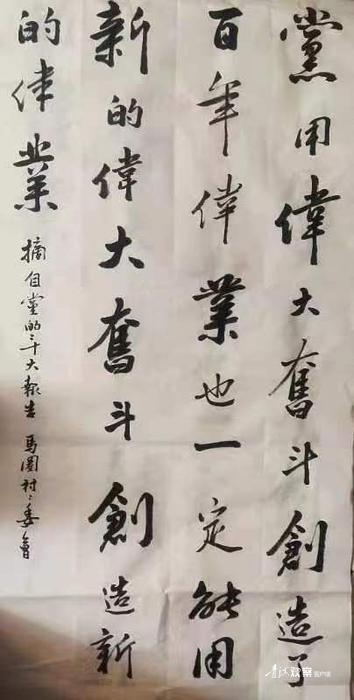 黨用偉大奮斗創造了
百年偉業也一定能用
新的偉大奮斗創造新
的伟業
摘自党的二十大報告 馬圈村々委會
观察 客户端